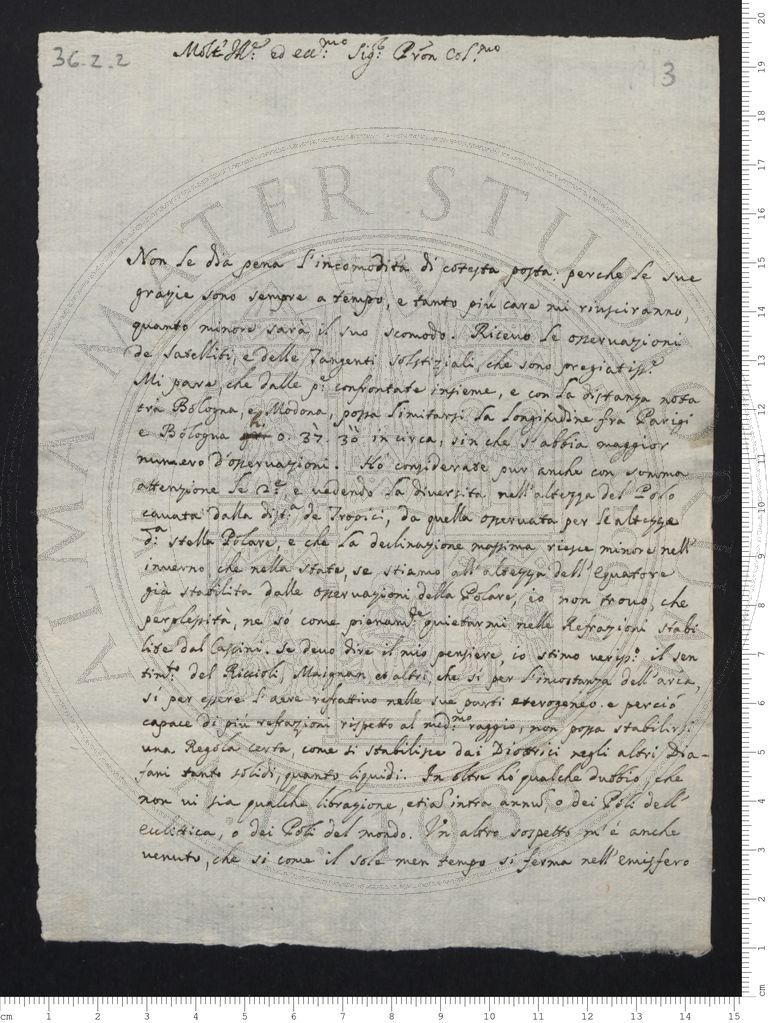 36.2.2
3
Molt' Ill.e ed ecc.mo Sig.r P'ron Col.mo
Non le dia pena l'incomodità di cotesta posta: perche le sue
grazie sono sempre a tempo, e tanto più care mi riusciranno,
quanto minore sarà il suo scomodo. Ricevo le osservazioni
de Satelliti, e delle Tangenti solstiziali, che sono pregiatiss.e
Mi pare che dalle p.e confrontate insieme, e con la distanza nota
trà Bologna, e Modona, possa limitarsi la longitudine fra Parigi
e Bologna h. 0. 37. 30 in circa, sin che s'abbia maggior
numero d'osservazioni. Hò considerate pur anche con somma
attenzione le 2.e e vedendo la diversità nell'altezza del Polo
cavata dalla dist.a de Tropici, da quella osservata per le altezze
d.a stella Polare, e che la declinazione massima riesce minore nell'
inverno che nella state, se stiamo all'altezza dell'Equatore
già stabilita dalle osservazioni della Polare, io non trovo, che
perplessità, ne sò come pienam.te quietarmi nelle Refrazioni stabi
lite dal Cassini. Se devo dire il mio pensiere, io stimo veriss.o il sen
tim.to del Riccioli, Maignan et altri, che si per l'incostanza dell'aria,
si per essere l'aere refrattivo nelle sue parti eterogeneo e perciò
capace di più refrazioni rispetto al med.mo raggio, non possa stabilirsi
una Regola certa, come si stabilisce dai Diottrici negli altri Dia-
fani tanto solidi, quanto liquidi. In oltre hò qualche dubbio, che
non vi sia qualche librazione, etia' intra annu', o dei Poli dell'
eclittica, o dei Poli del mondo. Un altro sospetto m'è anche
venuto, che si come il sole men tempo si ferma nell'emisfero
ALMA MATER STUDIORUM
A.D. 1088